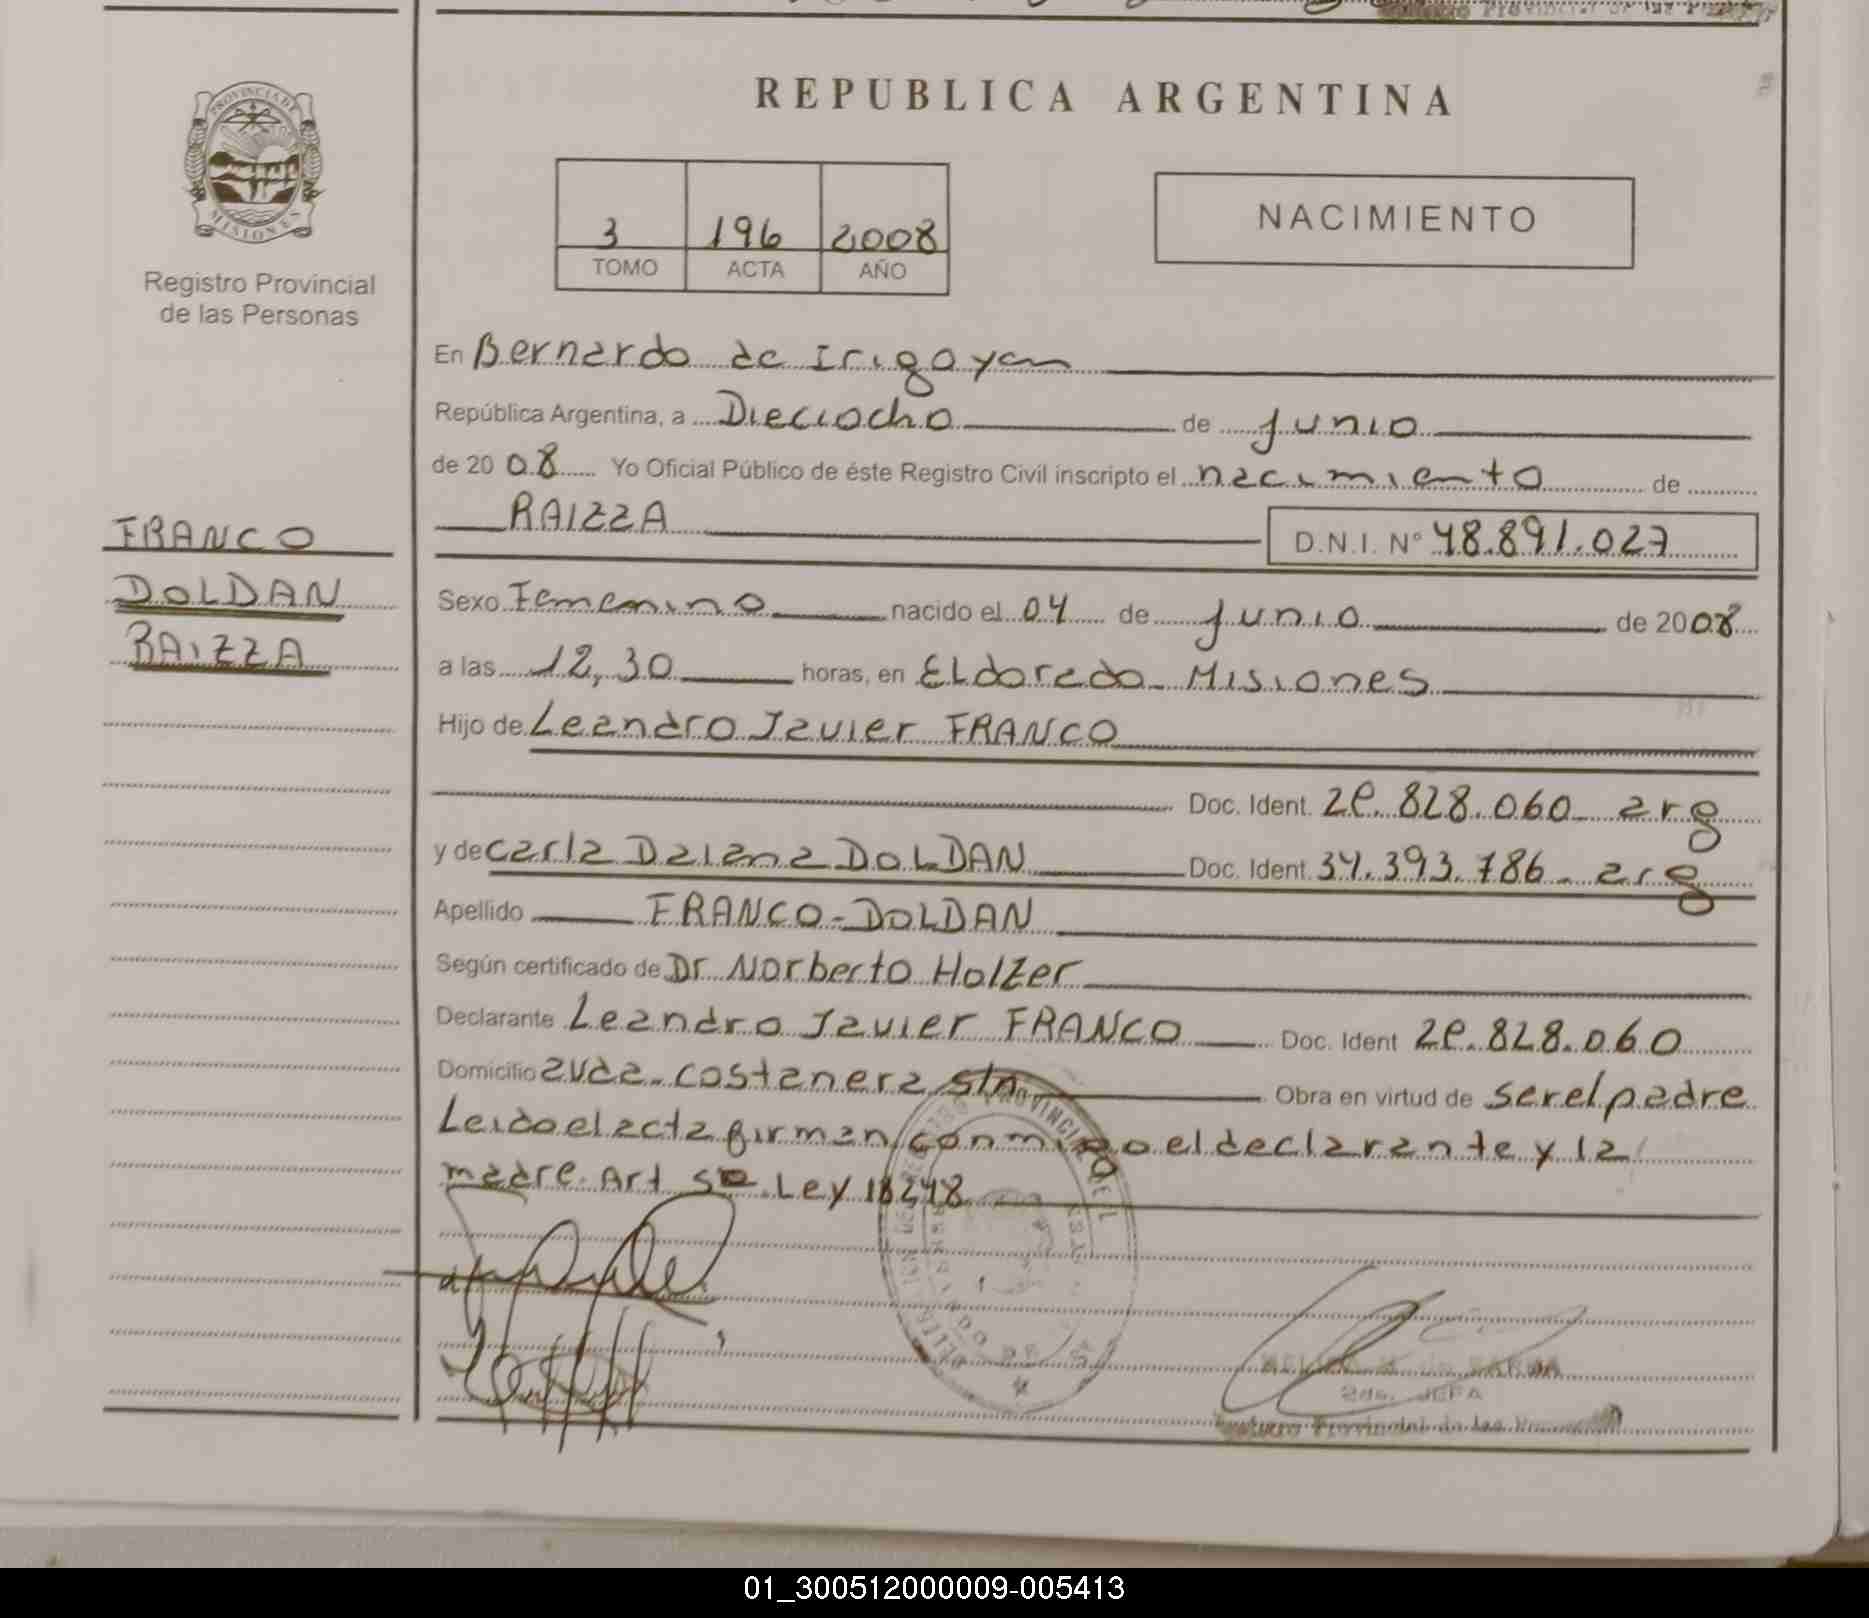 REPUBLICA ARGENTINA
PROVINCIA DE
MISIONES
Registro Provincial
de las Personas
3 196 2008
TOMO ACTA AÑO
NACIMIENTO
En Bernardo de Irigoyen
República Argentina, a Dieciocho de junio
de 2008 Yo Oficial Público de éste Registro Civil inscripto el nacimiento de
RAIZZA
D.N.I. N° 48.891.027
FRANCO
DOLDAN
RAIZZA
Sexo Femenino nacido el 04 de junio de 2008
a las 12,30 horas, en Eldorado Misiones
Hijo de Leandro Javier FRANCO
Doc. Ident. 28.828.060 arg
y de Carla Daiana DOLDAN Doc. Ident. 34.393.786 - arg
Apellido FRANCO-DOLDAN
Según certificado de Dr Norberto Holzer
Declarante Leandro Javier FRANCO Doc. Ident 28.828.060
Domicilio avda. costanera s/n Obra en virtud de ser el padre
Leido el acta firman conmigo el declarante y la
madre. Art 5º Ley 18248
2da. JEFA
Provincial de las
01_300512000009-005413